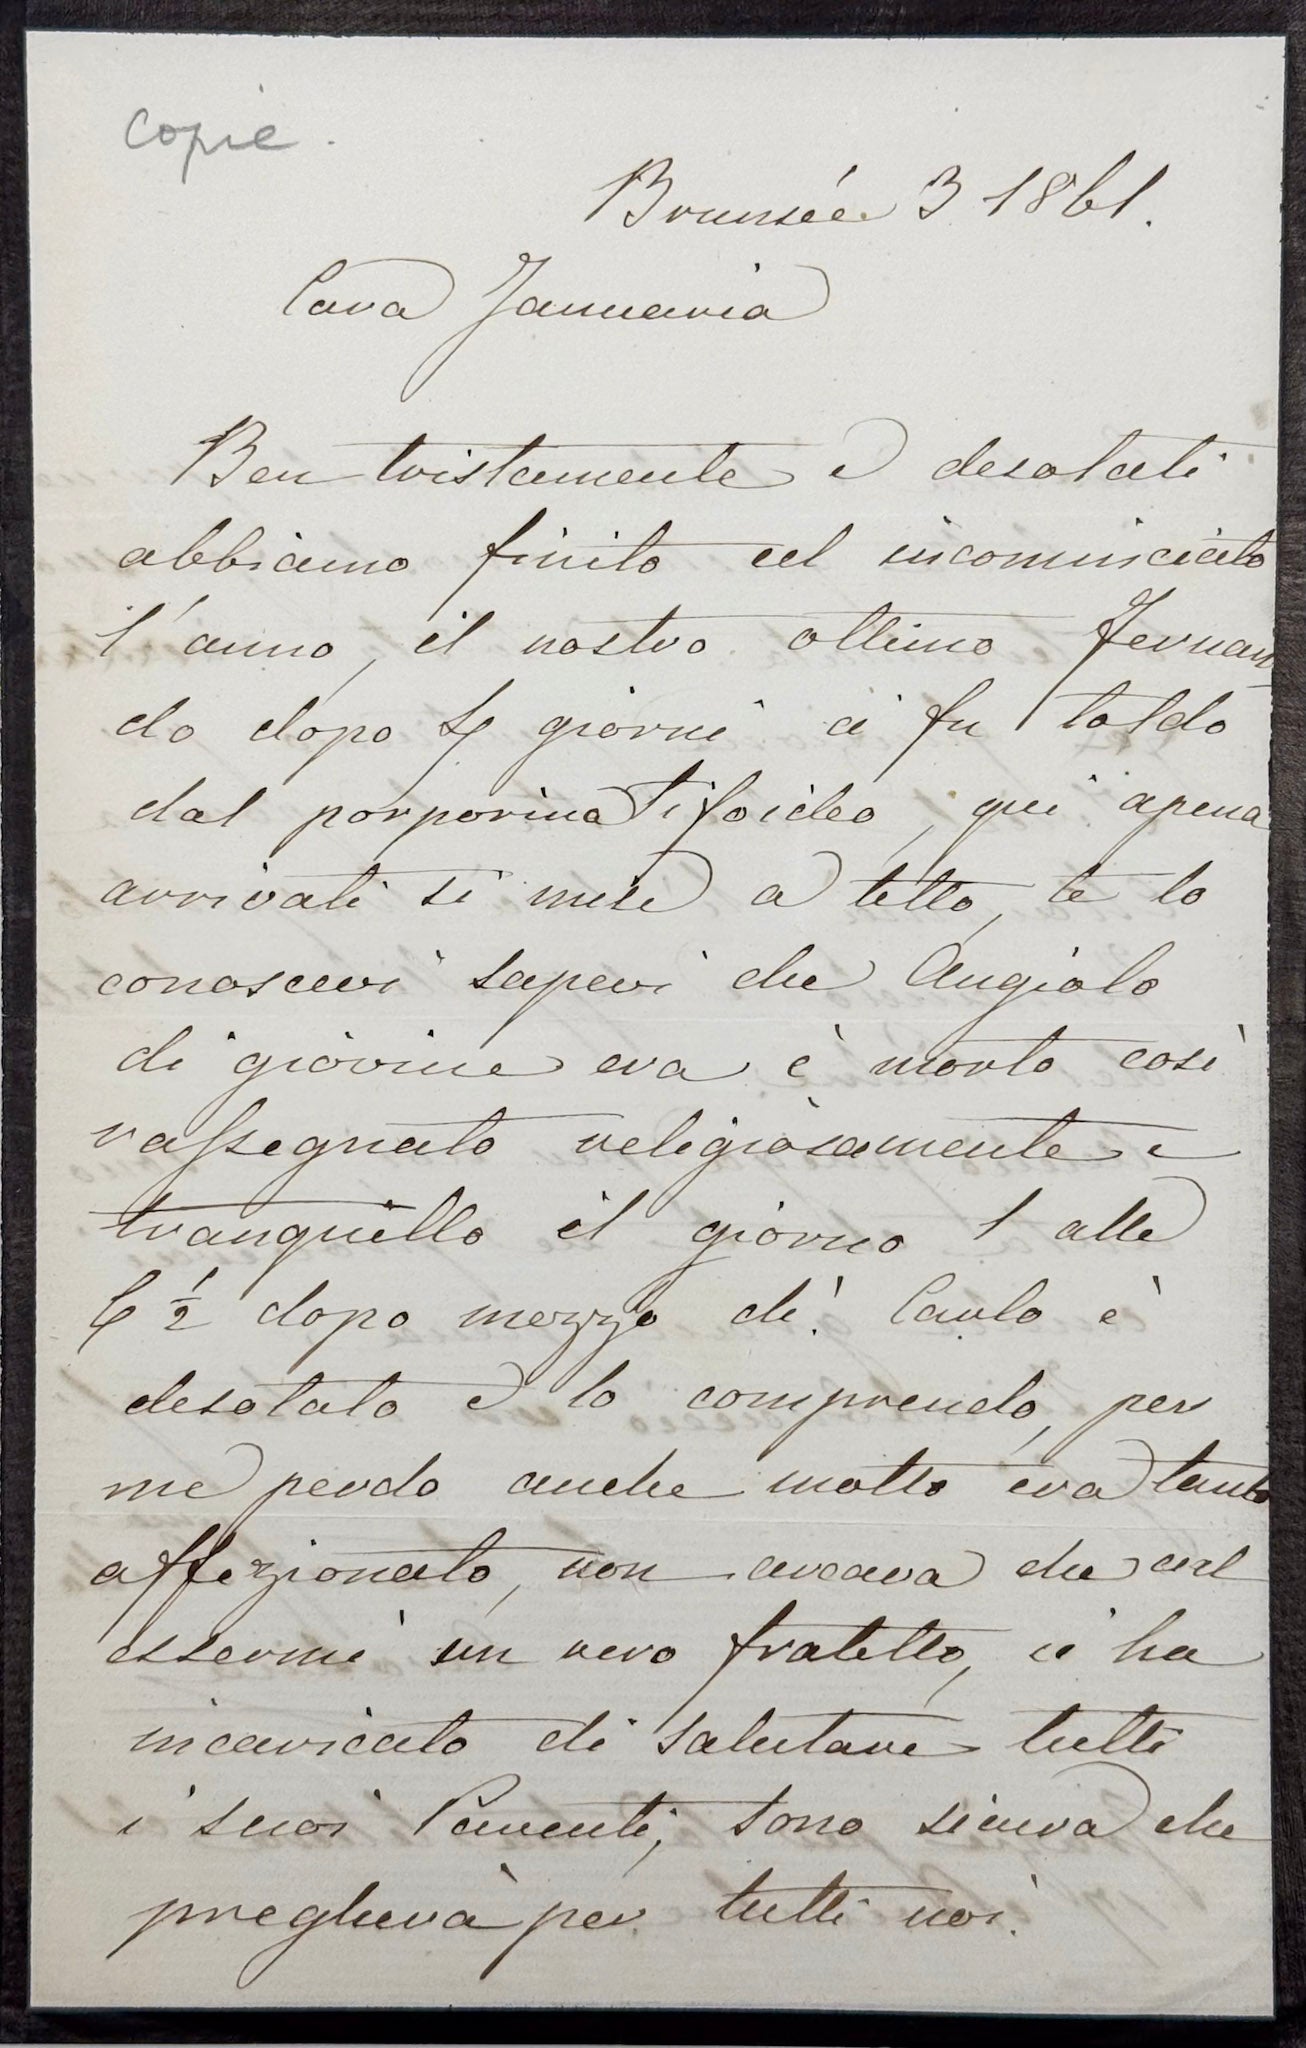 copie.
Brunsée 3 1861.
Cara Januaria
Ben tristamente e desolati
abbiamo finito ed incominciato
l'anno, il nostro ottimo Fernan
do dopo giorni ci fu toldo
dal porporina Tifoideo, qui apena
arrivati si mise a letto, te lo
conoscevi sapevi che Angiolo
di giovine era è morto così
rassegnato religiosamente e
tranquillo il giorno 1 alle
6 ½ dopo mezzo dì. Carlo è
desolato e lo comprendo, per
me perdo anche molto era tanto
affezionato, non aveava che
essermi un vero fratello, ci ha
incaricato di salutare tutti
i suoi Parenti, sono sicura che
pregherà per tutti noi.